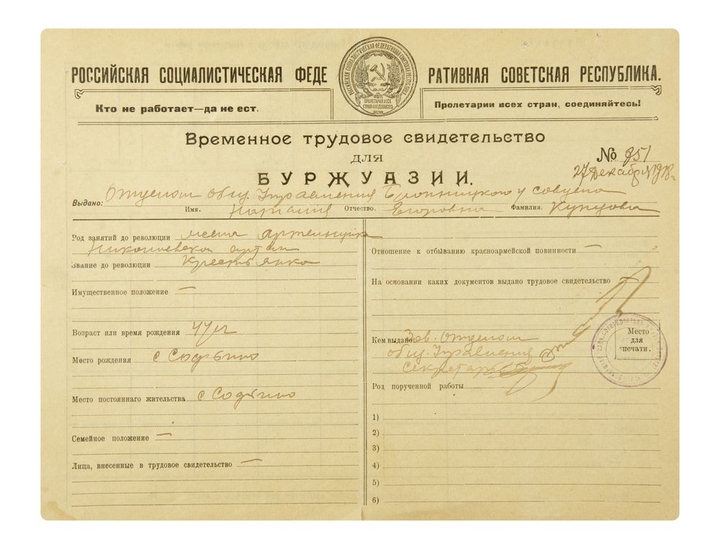 РОССИЙСКАЯ СОЦИАЛИСТИЧЕСКАЯ ФЕДЕ РАТИВНАЯ СОВЕТСКАЯ РЕСПУБЛИКА.
Кто не работает—да не ест. Пролетарии всех стран, соединяйтесь!
Временное трудовое свидетельство
для
БУРЖУАЗИИ.
№ 951
27 декабря 1918 г.
Выдано: Отделом общ. Управления у совдепа
Имя. Наталия Отчество. Егоровна Фамилия. Купцова
Род занятий до революции
Николаевская
Звание до революции Крестьянка
Имущественное положение —
Возраст или время рождения 44 г
Место рождения с
Место постоянного жительства с
Семейное положение —
Лица, внесенные в трудовое свидетельство —
Отношение к отбыванию красноармейской повинности —
На основании каких документов выдано трудовое свидетельство
Кем выдано Зав. Отделом
общ. Управления
Секретарь
Место
для
печати.
Род порученной работы —
1)
2)
3)
4)
5)
6)